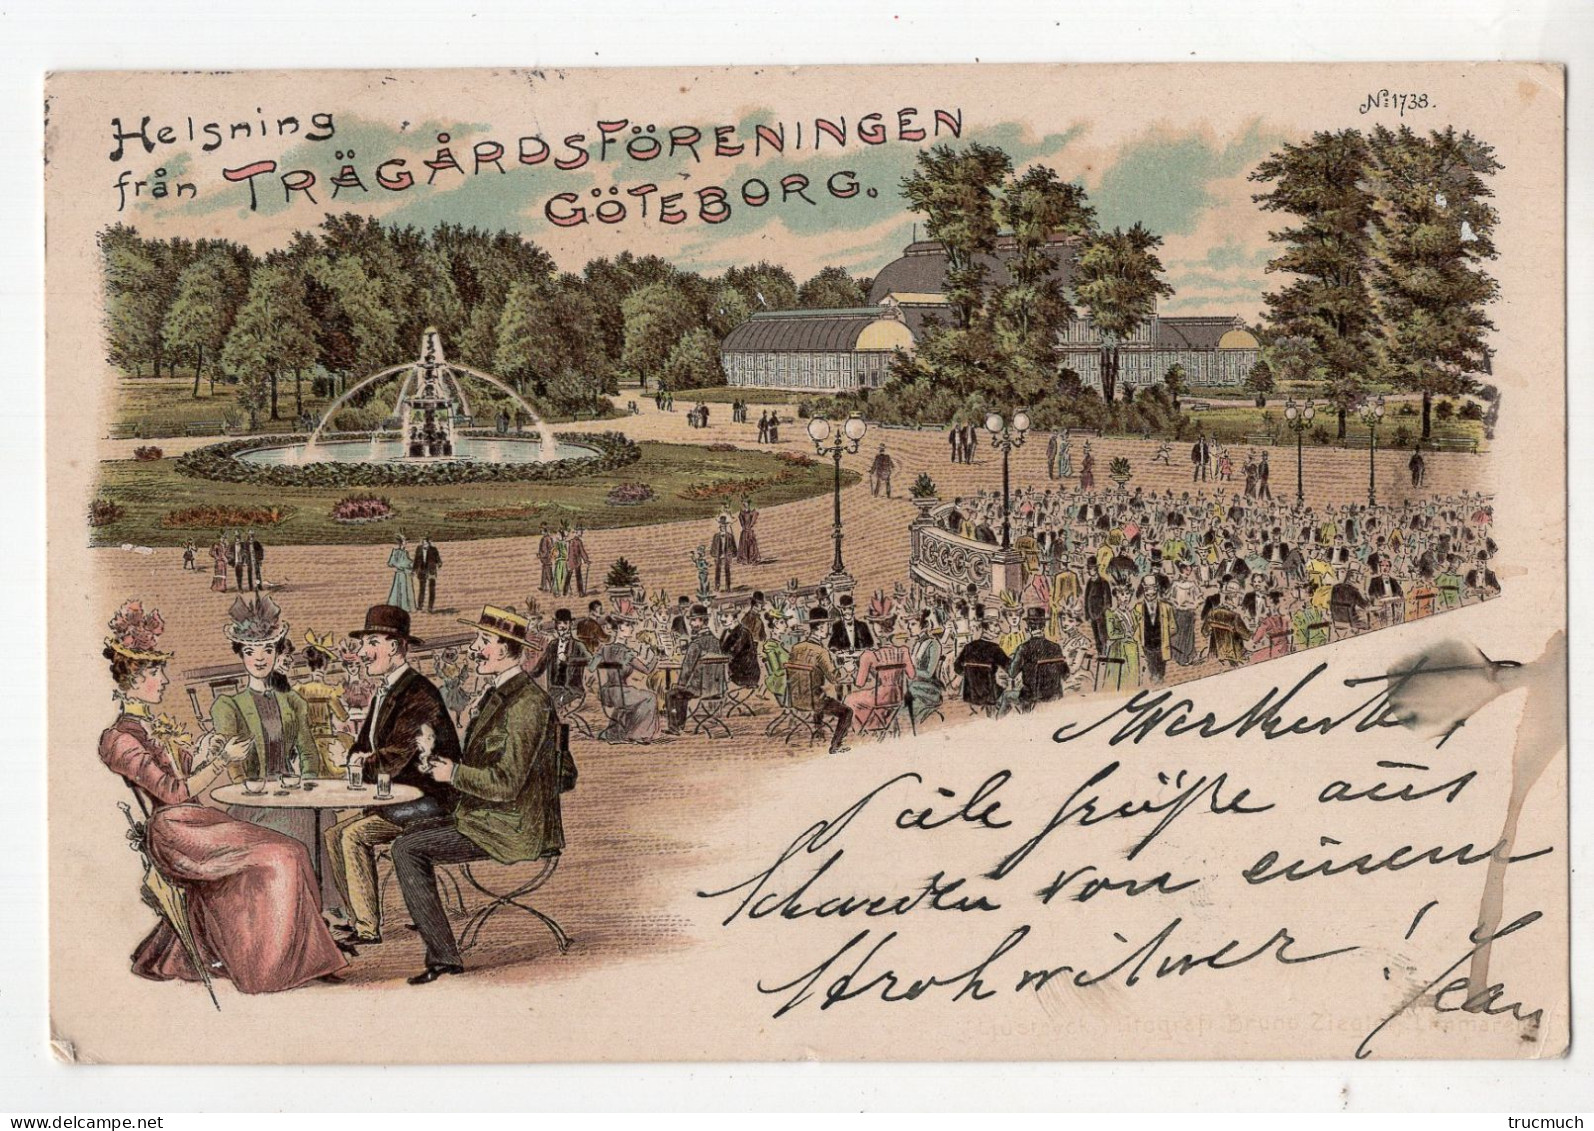 Helsning
från TRÄGÅRDSFÖRENINGEN
GÖTEBORG.
No: 1738.
Werteste,
Viele Grüße aus
Schweden von einem
Strohwitwer!
Jean
Ljustryck Litografi Bruno Ziegler
trucmuch